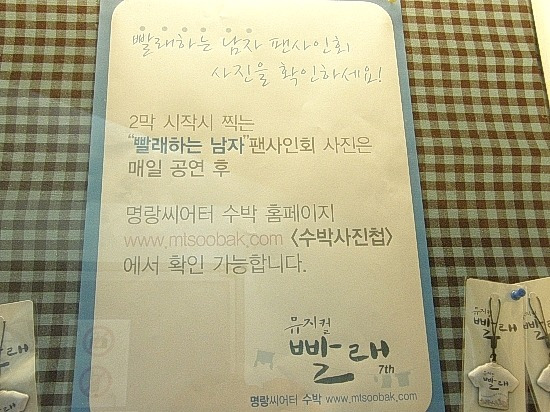 빨래하는 남자 팬사인회
사진을 확인하세요!
2막 시작시 찍는
"빨래하는 남자"팬사인회 사진은
매일 공연 후
명랑씨어터 수박 홈페이지
www.mtsoobak.com <수박사진첩>
에서 확인 가능합니다.
뮤지컬
빨래
7th
명랑씨어터 수박 www.mtsoobak.com
뮤지컬
빨래
빨래
빨래